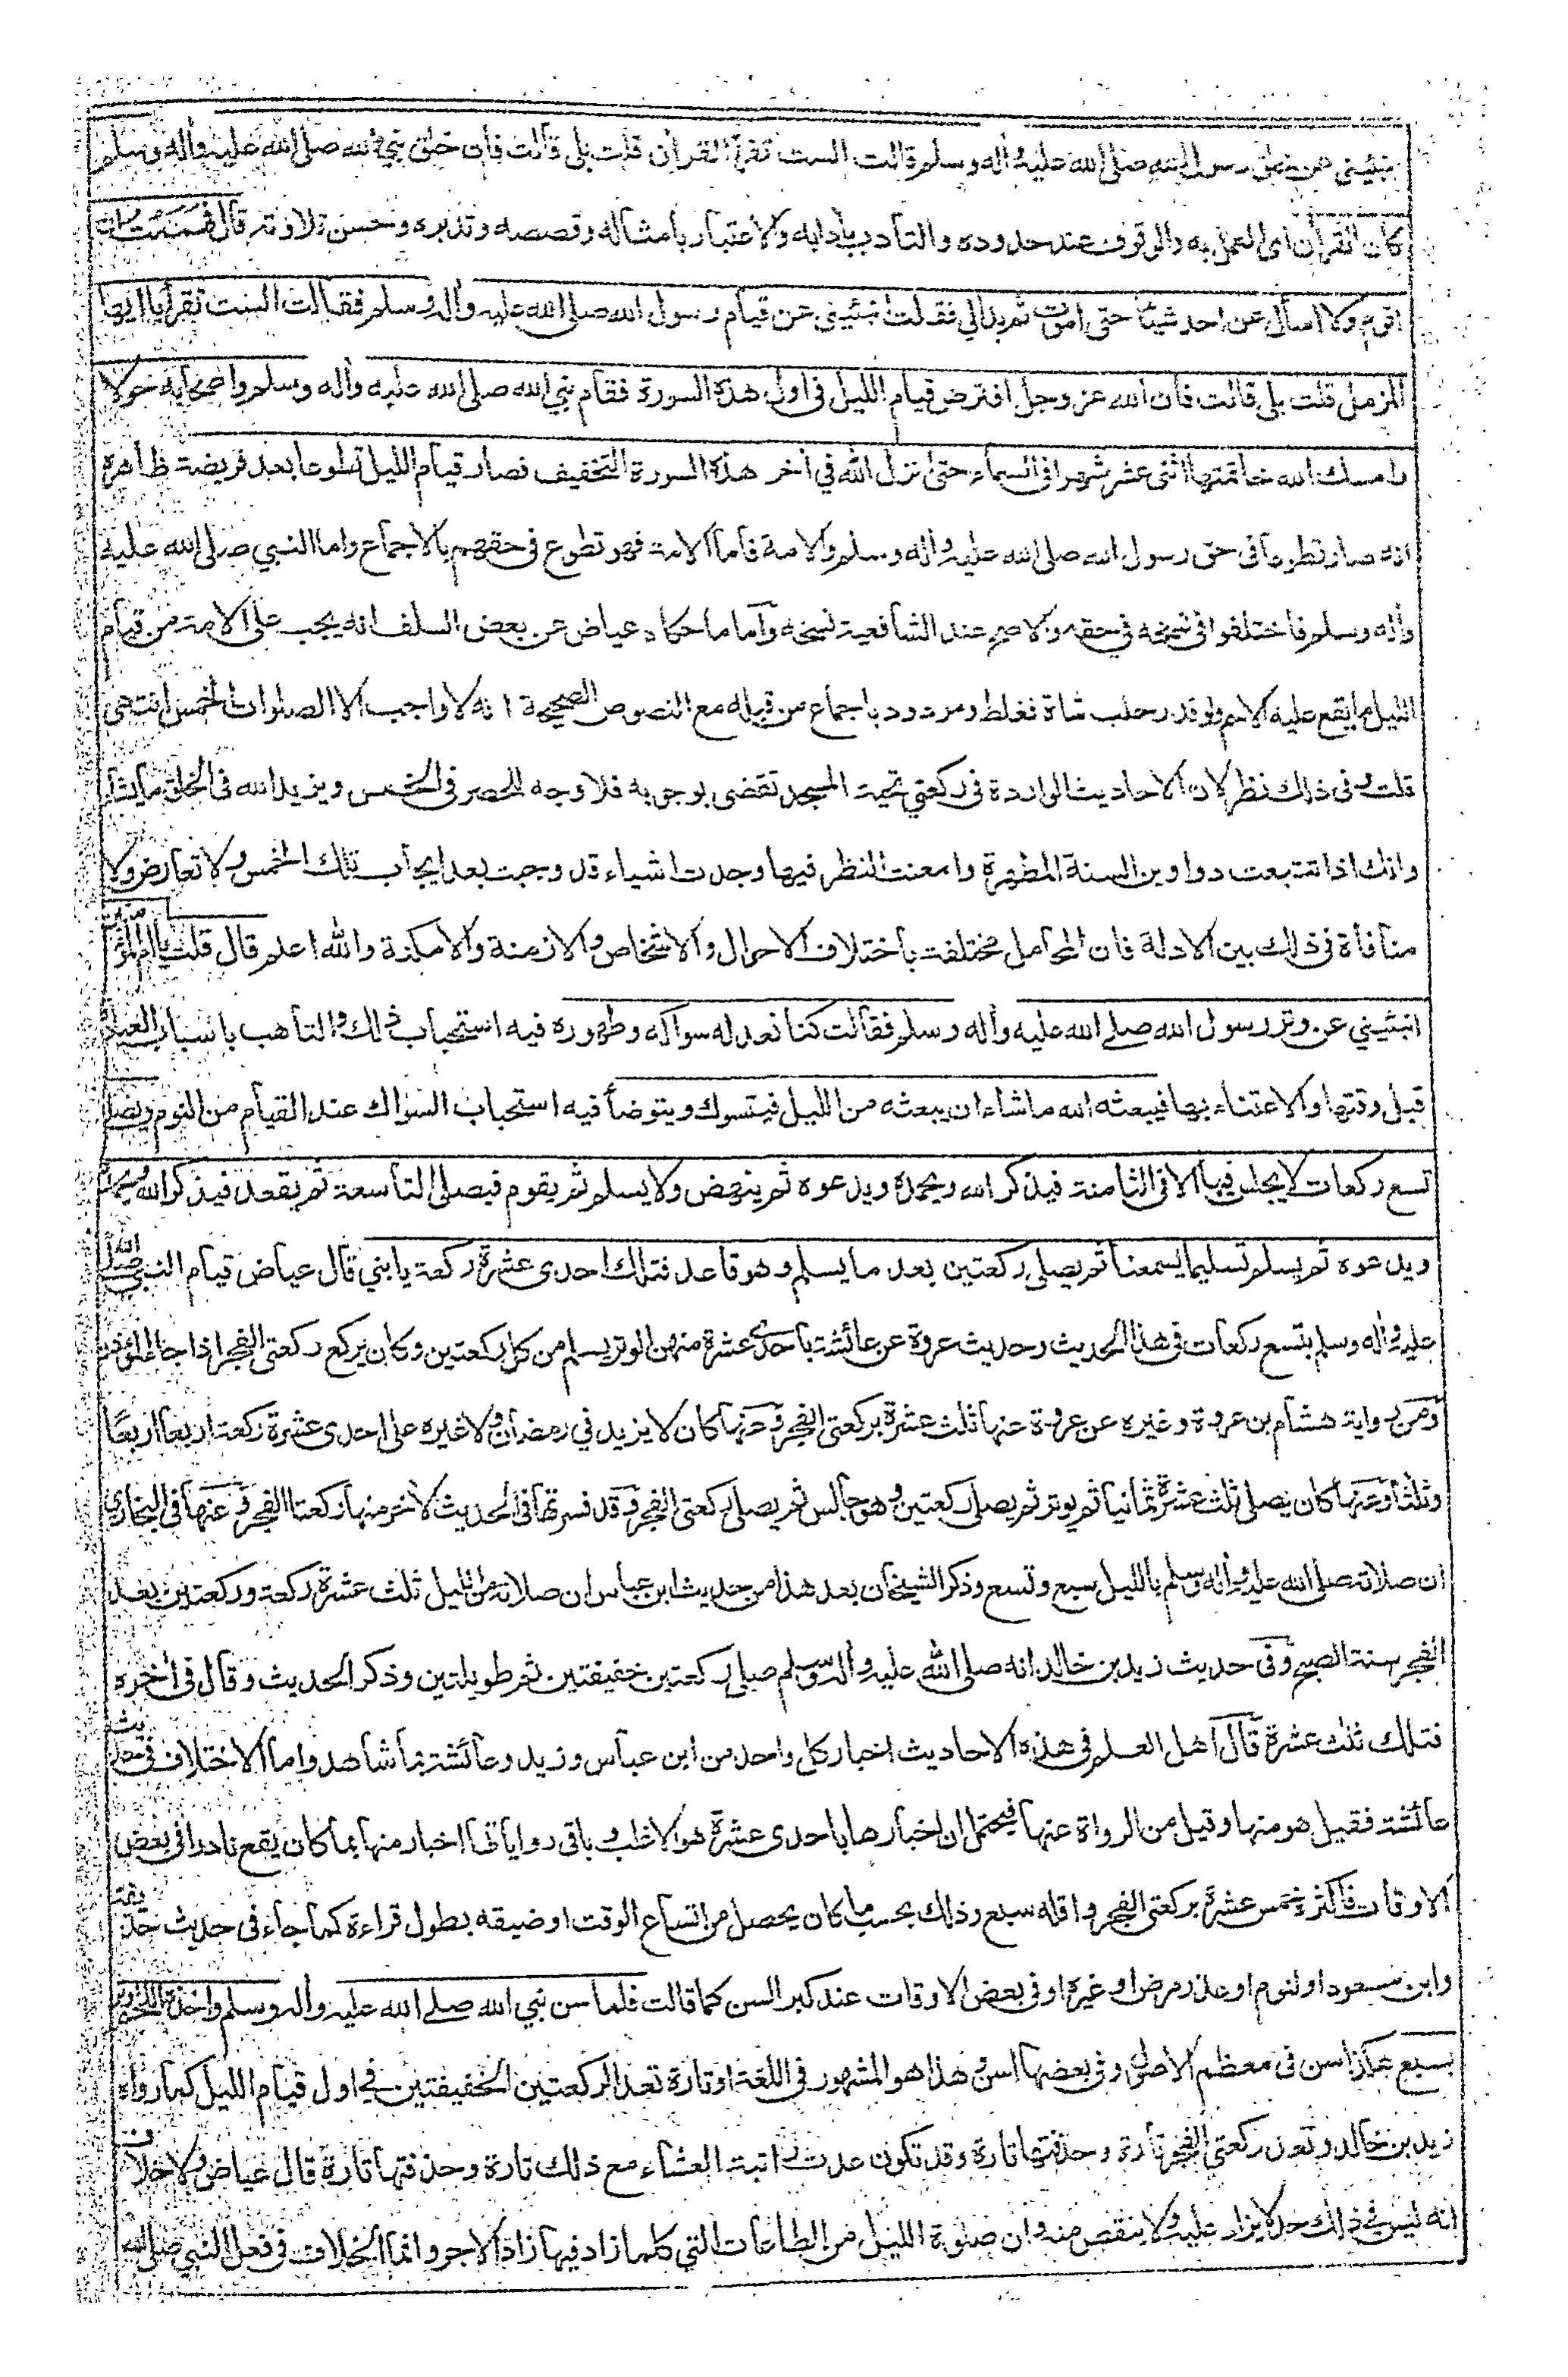 انبئيني عن خلق رسول الله صلى الله عليه وأله وسلم قالت الست تقرأ القرأن قلت بلى قالت فأن خلق نبي الله صلى الله عليه وأله وسلم
كان القرأن اى العمل به والوقوف عند حدوده والتأدب بأدابه والاعتبار بأمثاله وقصصه وتدبره وحسن تلاوته قال فهممت ان
اقوم ولا اسأل عن احد شيئا حتى اموت ثم بدالي فقلت انبئيني عن قيام رسول الله صلى الله عليه وأله وسلم فقالت الست تقرأ يا ايها
المزمل قلت بلى قالت فأن الله عز وجل افترض قيام الليل فى اول هذه السورة فقام نبي الله صلى الله عليه وأله وسلم واصحابه حولا
وامسك الله خاتمتها اثنى عشر شهرا فى السماء حتى انزل الله في أخر هذه السورة التخفيف فصار قيام الليل تطوعا بعد فريضة ظاهره
انه صار تطوعا فى حق رسول الله صلى الله عليه وأله وسلم والامة فأما الامة فهو تطوع فى حقهم بالاجماع واما النبي صلى الله عليه
وأله وسلم فاختلفوا فى نسخه في حقه والاصح عند الشافعية نسخه وأما ما حكاه عياض عن بعض السلف انه يجب على الامة من قيام
الليل ما يقع عليه الاسم ولو قدر حلب شاة فغلط ومردود باجماع من قبله مع النصوص الصحيحة انه لا واجب الا الصلوات الخمس انتهى
قلت وفى ذلك نظر لان الاحاديث الواردة فى ركعتي تحية المسجد تقضى بوجوبه فلا وجه للحصر فى الخمس ويزيد الله فى الخلق ما يشاء
وانك اذا تتبعت دواوين السنة المطهرة وامعنت النظر فيها وجدت اشياء قد وجبت بعد ايجاب تلك الخمس ولا تعارض ولا
منافاة فى ذلك بين الادلة فان المحامل مختلفة بأختلاف الاحوال والاشخاص والازمنة والامكنة والله اعلم قال قلت يا ام المؤمنين
انبئيني عن وتر رسول الله صلى الله عليه وأله وسلم فقالت كنا نعد له سواكه وطهوره فيه استحباب ذلك والتأهب باسباب العبادة
قبل وقتها والاعتناء بها فيبعثه الله ما شاء ان يبعثه من الليل فيتسوك ويتوضأ فيه استحباب السواك عند القيام من النوم ويصلى
تسع ركعات لا يجلس فيها الا فى الثامنة فيذكر الله ويحمده ويدعوه ثم ينهض ولا يسلم ثم يقوم فيصلى التاسعة ثم يقعد فيذكر الله ويحمده
ويدعوه ثم يسلم تسليما يسمعنا ثم يصلى ركعتين بعد ما يسلم وهو قاعد فتلك احدى عشرة ركعة يا بني قال عياض قيام النبي صلى الله
عليه وأله وسلم بتسع ركعات فى هذا الحديث وحديث عروة عن عائشة بأحدى عشرة منهن الوتر يسلم من كل ركعتين وكان يركع ركعتى الفجر اذا جاء المؤذن
ومن رواية هشام بن عروة وغيره عن عروة عنها ثلث عشرة بركعتى الفجر وعنها كان لا يزيد في رمضان ولا غيره على احدى عشرة ركعة اربعا اربعا
وثلثا وعنها كان يصلى ثلث عشرة ثمانيا ثم يوتر ثم يصلى ركعتين وهو جالس ثم يصلى ركعتى الفجر وقد فسرتها فى الحديث الاخر منها ركعتا الفجر وعنها فى البخاري
ان صلاته صلى الله عليه وأله وسلم بالليل سبع وتسع وذكر الشيخان بعد هذا من حديث ابن عباس ان صلاته من الليل ثلث عشرة ركعة وركعتين بعد
الفجر سنة الصبح وفى حديث زيد بن خالد انه صلى الله عليه وأله وسلم صلى ركعتين خفيفتين ثم طويلتين وذكر الحديث وقال فى أخره
فتلك ثلث عشرة قال اهل العلم فى هذه الاحاديث اخبار كل واحد من ابن عباس وزيد وعائشة بما شاهد واما الاختلاف فى حديث
عائشة فقيل هو منها وقيل من الرواة عنها فيحتمل ان اخبارها باحدى عشرة هو الاغلب وباقى رواياتها اخبار منها بما كان يقع نادرا فى بعض
الاوقات فاكثره خمس عشرة بركعتى الفجر واقله سبع وذلك بحسب ما كان يحصل من اتساع الوقت او ضيقه بطول قراءة كما جاء فى حديث حذيفة
وابن مسعود او لنوم او عذر مرض او غيره او فى بعض الاوقات عند كبر السن كما قالت فلما سن نبي الله صلى الله عليه وأله وسلم واخذه اللحم اوتر
بسبع هكذا سن فى معظم الاصول وفى بعضها اسن وهذا هو المشهور فى اللغة او تارة تعد الركعتين الخفيفتين فى اول قيام الليل كما رواه
زيد بن خالد وتعد ركعتى الفجر تارة وحذفتها تارة وقد تكون عدت راتبة العشاء مع ذلك تارة وحذفتها تارة قال عياض ولا خلاف
انه ليس فى ذلك حد لا يزاد عليه ولا ينقص منه وان صلوة الليل من الطاعات التي كلما زاد فيها زاد الاجر وانما الخلاف فى فعل النبي صلى الله